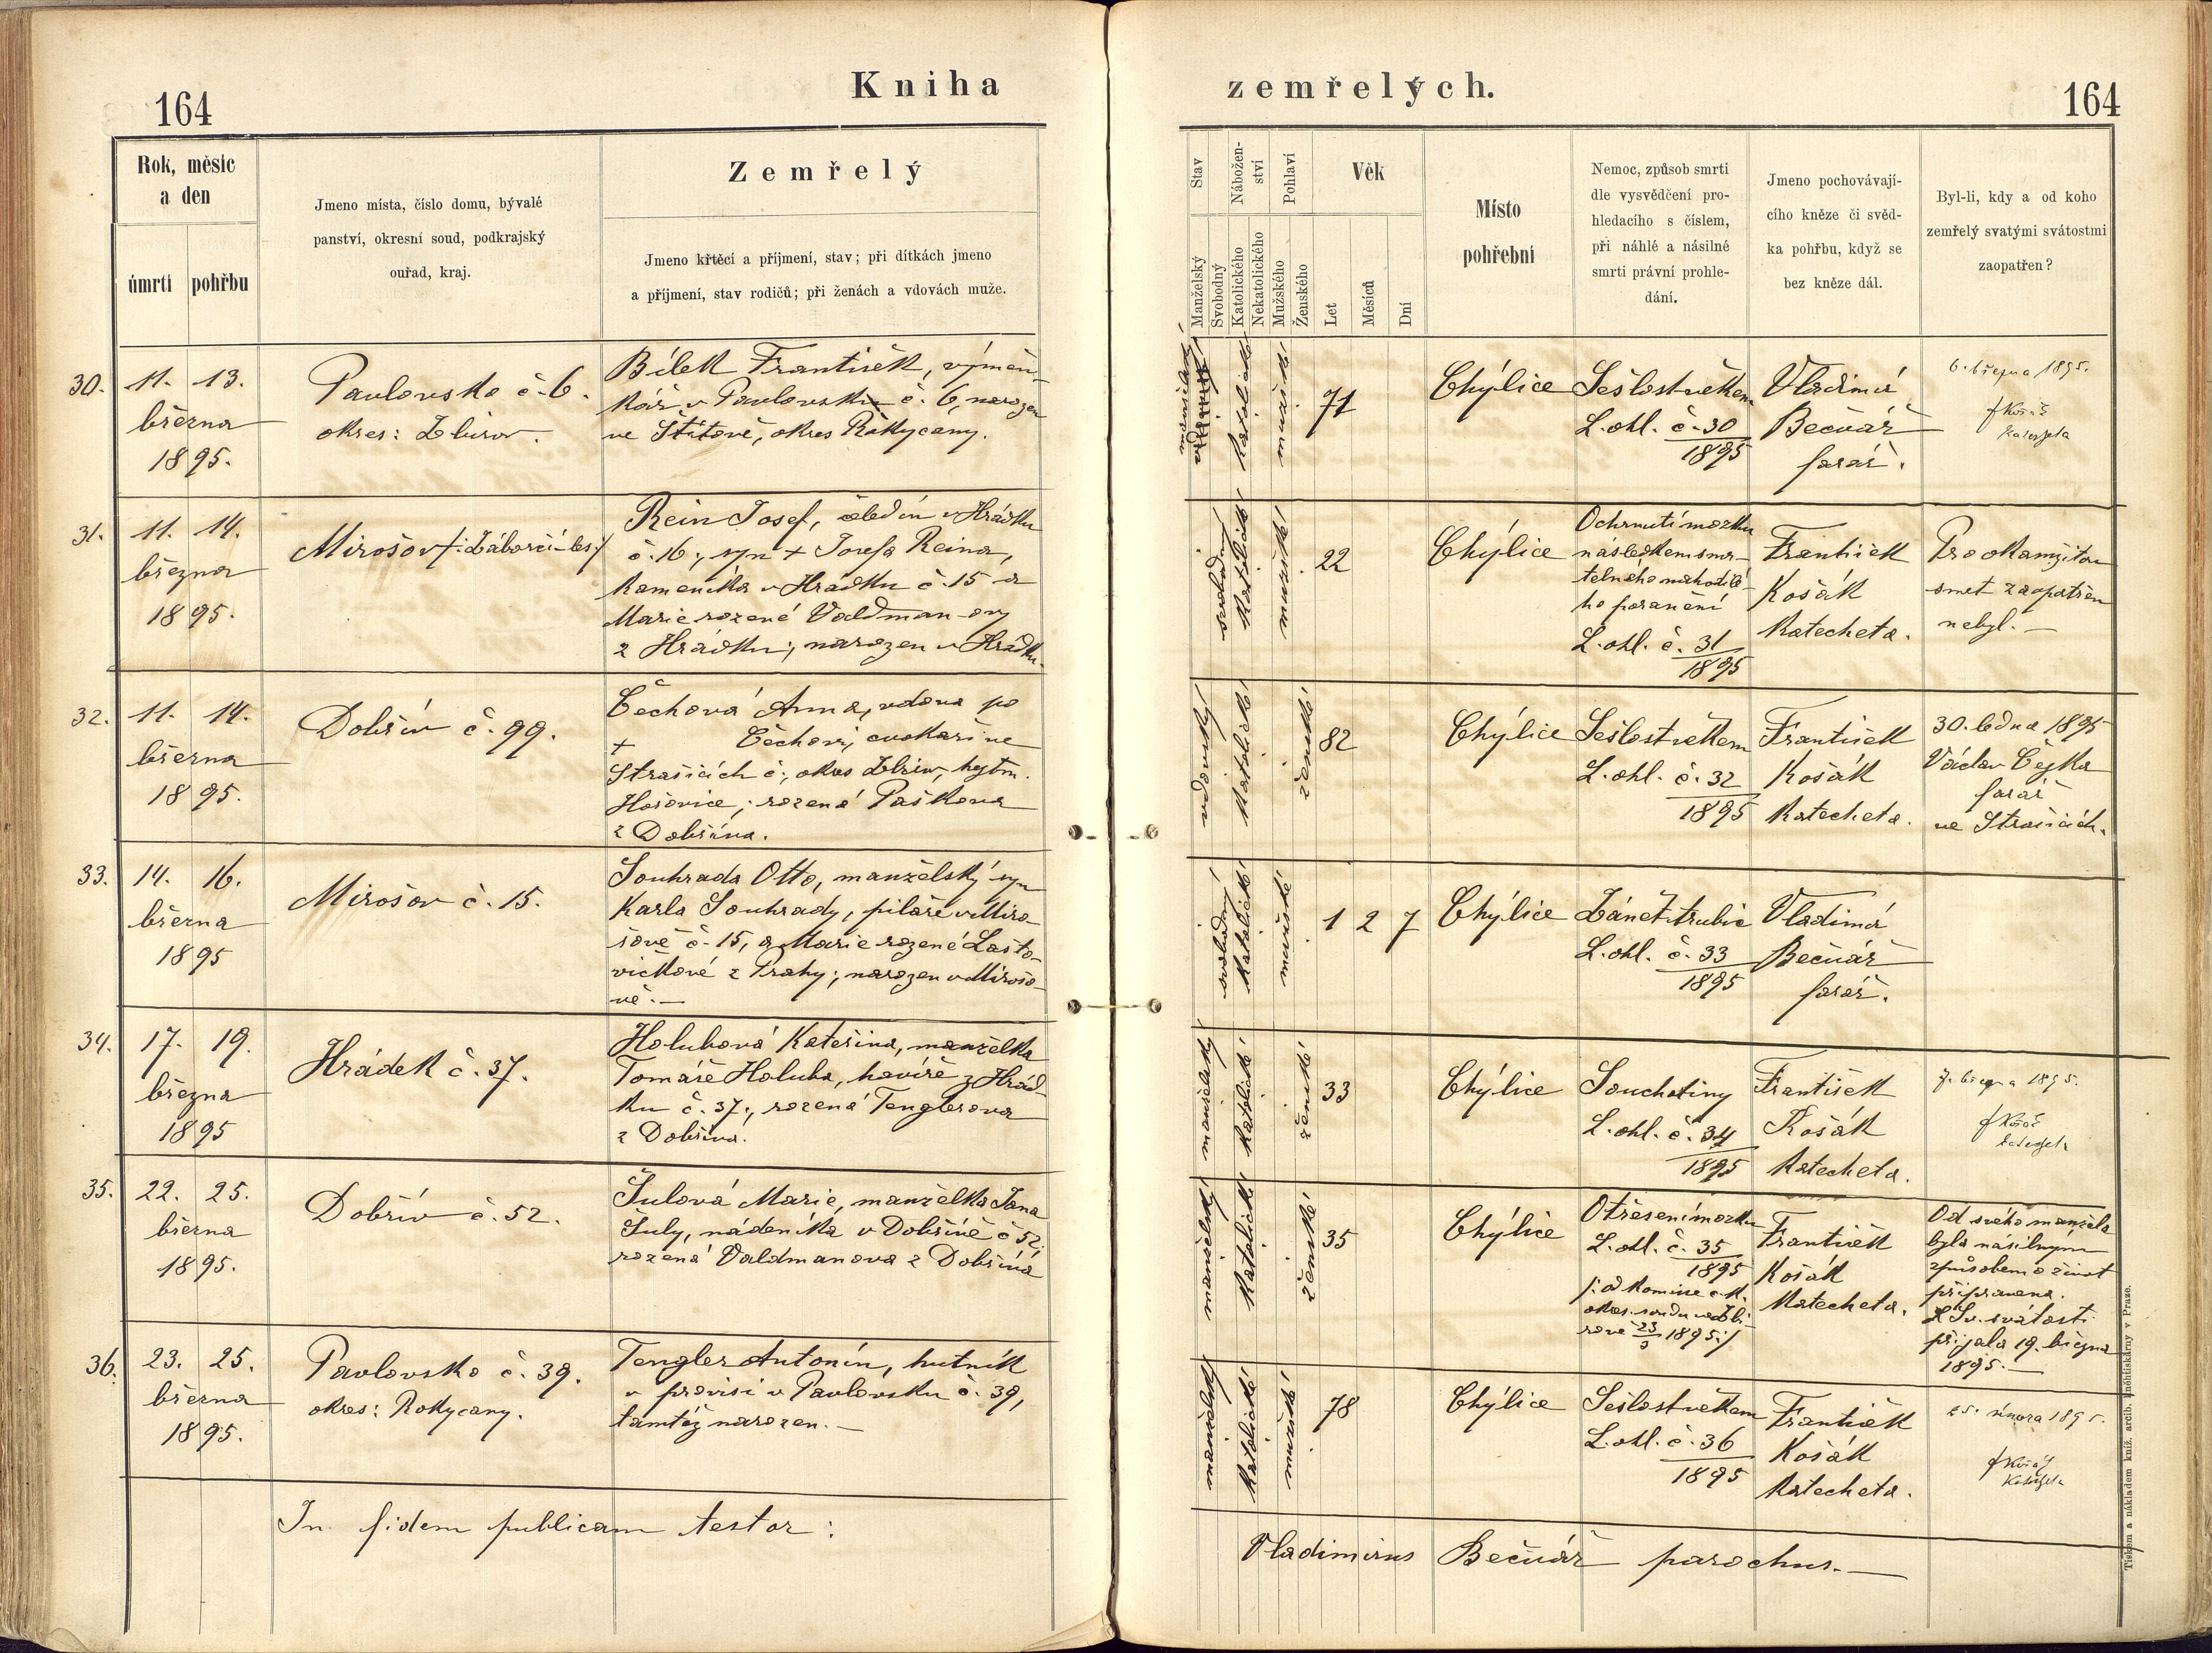 Kniha
zemřelých.
164
164
Rok, měsíc
a den
úmrtí
pohřbu
Jmeno místa, číslo domu, bývalé
panství, okresní soud, podkrajský
ouřad, kraj.
Zemřelý
Jmeno křtěcí a příjmení, stav; při dítkách jmeno
a příjmení, stav rodičů; při ženách a vdovách muže.
Stav
Nábožen-
ství
Pohlaví
Věk
Manželský
Svobodný
Katolického
Nekatolického
Mužského
Ženského
Let
Měsíců
Dní
Místo
pohřební
Nemoc, způsob smrti
dle vysvědčení pro-
hledacího s číslem,
při náhlé a násilné
smrti právní prohle-
dání.
Jmeno pochovávají-
cího kněze či svěd-
ka pohřbu, když se
bez kněze dál.
Byl-li, kdy a od koho
zemřelý svatými svátostmi
zaopatřen?
30. 11. 13.
března
1895.
Pavlovsko č. 6.
okres: Zbirov.
Bílek František, výměn-
kář v Pavlovsku č. 6, narozen
ve Štítově, okres Rokycany.
manželský
katolické
mužské
71
Chýlice
Sešlost věkem
L. ohl. č. 30
1895
Vladimír
Bečvář
farář.
6. března 1895.
31. 11. 14.
března
1895.
Mirošov /: Záborčí-les :/
Rein Josef, čeledín v Hrádku
č. 16; syn + Josefa Reina,
kameníka v Hrádku č. 15 a
Marie rozené Valdman-ovy
z Hrádku; narozen v Hrádku.
svobodný
katolické
mužské
22
Chýlice
Ochrnutí mozku
následkem smr-
telného nahodilé-
ho poranění
L. ohl. č. 31
1895
František
Košák
katecheta.
Pro okamžitou
smrt zaopatřen
nebyl.—
32. 11. 14.
března
1895.
Dobřív č. 99.
Čechová Anna, vdova po
+ Čechovi, cvokaři ve
Strašicích č., okres Zbirov, hejtm.
Hořovice; rozená Paškova
z Dobřína.
vdovský
katolické
ženské
82
Chýlice
Sešlost věkem
L. ohl. č. 32
1895
František
Košák
katecheta.
30. ledna 1895
Václav Čejka
farář
ve Strašicích.
33. 14. 16.
března
1895
Mirošov č. 15.
Souhrada Otto, manželský syn
Karla Souhrady, pilaře v Miro-
šově č. 15, a Marie rozené Lašto-
vičkové z Prahy; narozen v Mirošo-
vě.—
svobodný
katolické
mužské
1 2 7
Chýlice
Zánět trubic
L. ohl. č. 33
1895
Vladimír
Bečvář
farář.
34. 17. 19.
března
1895
Hrádek č. 37.
Holubová Kateřina, manželka
Tomáše Holuba, havíře z Hrád-
ku č. 37; rozená Tenglerova
z Dobřívа.
manželský
katolické
ženské
33
Chýlice
Souchotiny
L. ohl. č. 34
1895
František
Košák
katecheta.
7. března 1895.
35. 22. 25.
března
1895.
Dobřív č. 52.
Šulová Marie, manželka Jana
Šuly, nádeníka v Dobřívě č 52;
rozená Valdmanova z Dobřívа
manželský
katolické
ženské
35
Chýlice
Otřesení mozku
L. ohl. č. 35
1895
/: od komise c. k.
okres. soudu ve Zbi-
rově 23/3 1895 :/
František
Košák
katecheta.
Od svého manžela
byla násilným
způsobem o život
připravena.
Sv. svátosti
přijala 19. března
1895.—
36. 23. 25.
března
1895.
Pavlovsko č. 39.
okres: Rokycany.
Tengler Antonín, hutník
v provisi v Pavlovsku č. 39,
tamtéž narozen.—
manželský
katolické
mužské
78
Chýlice
Sešlost věkem
L. ohl. č. 36
1895
František
Košák
katecheta.
25. února 1895.
In fidem publicam testor:
Vladimirus Bečvář parochus.—
Tiskem a nákladem kníž. arcib. knihtiskárny v Praze.